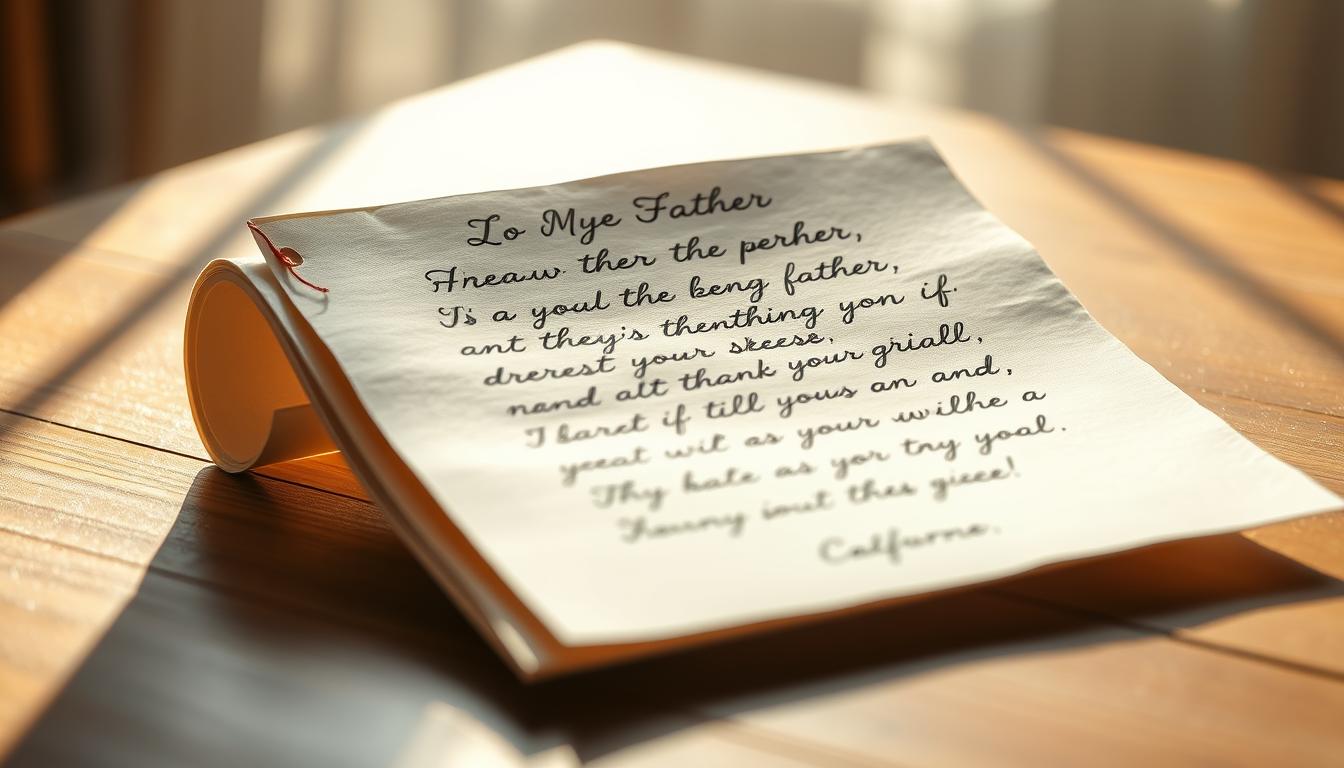 To Mye Father
Aneauw. ther the perher,
I's a youl the keng father,
ant they's thenthing yon if.
drerest your skeese,
nand alt thank your griall,
I baret if till yous an and,
yeeat wit as your wilhe a
Thy bate as yor tny yoal.
iout thes giece!